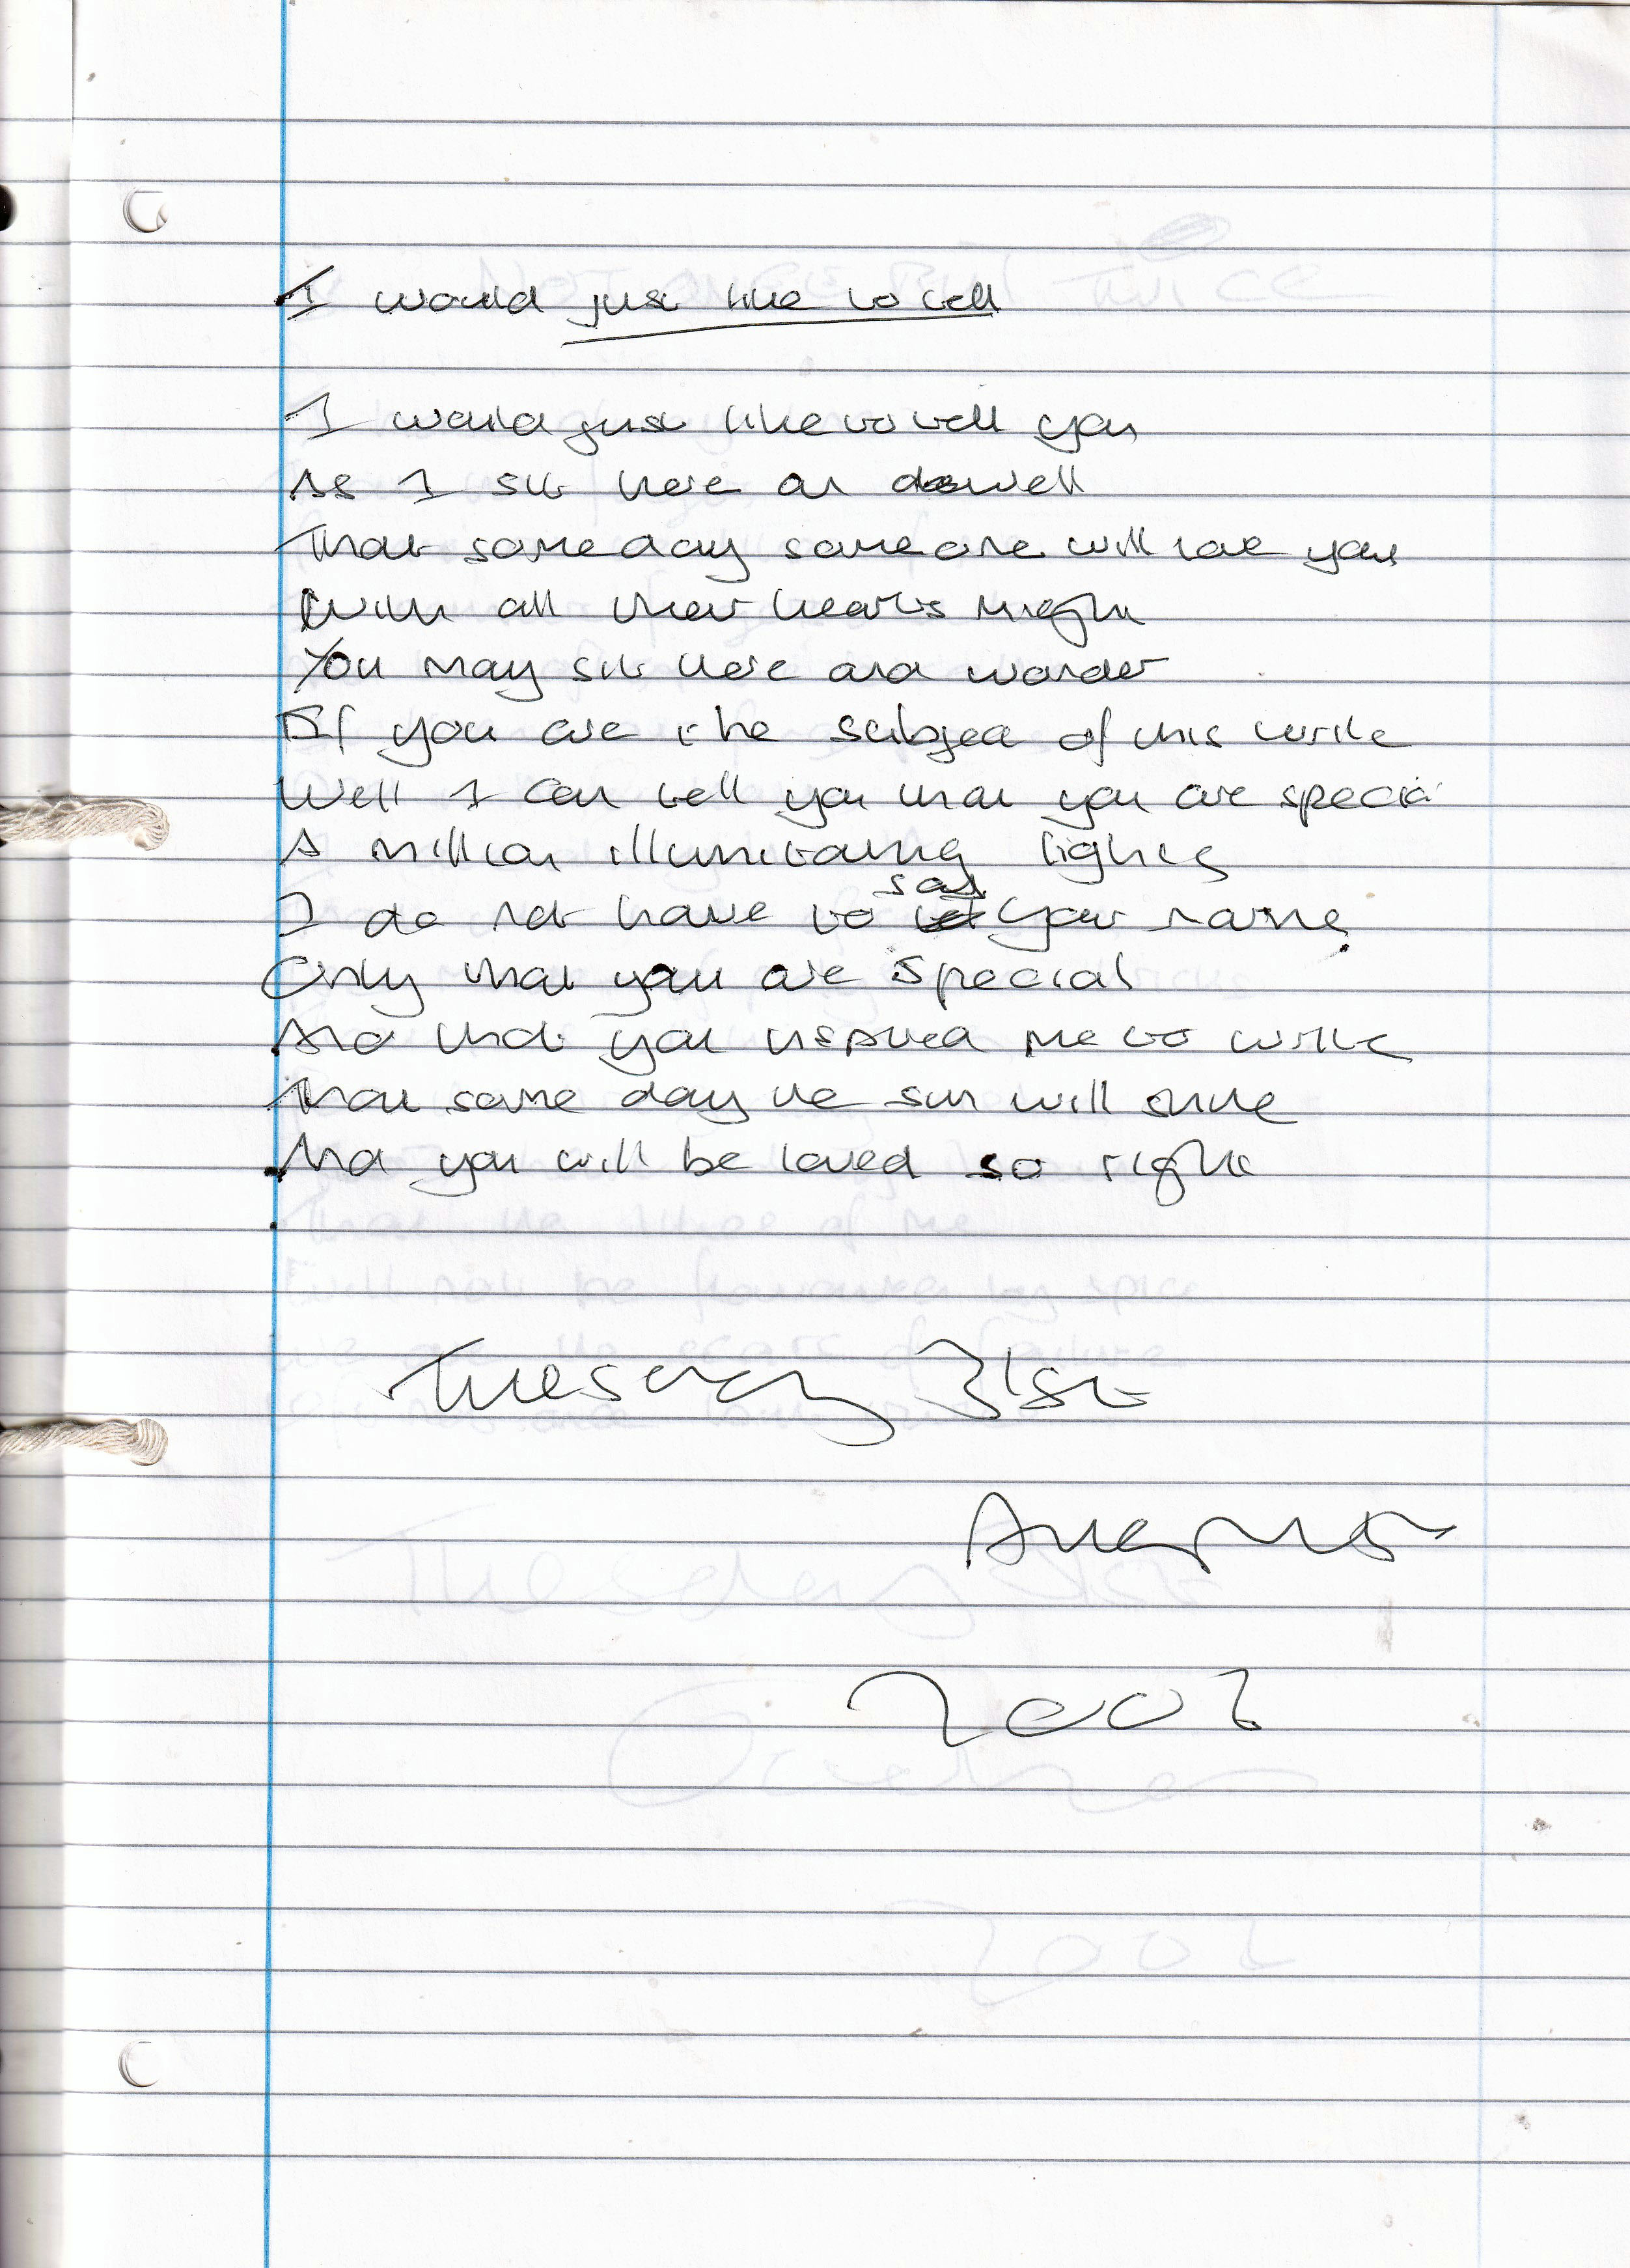 I would just like to tell
I would just like to tell you
As I sit here an dwell
That someday someone will love you
With all their hearts might
You may sit here and wonder
If you are the subject of this write
Well I can tell you that you are special
A million illuminating lights
I do not have to say your name
Only that you are special
And that you inspired me to write
That some day the sun will shine
And you will be loved so right
Tuesday 31st
2002